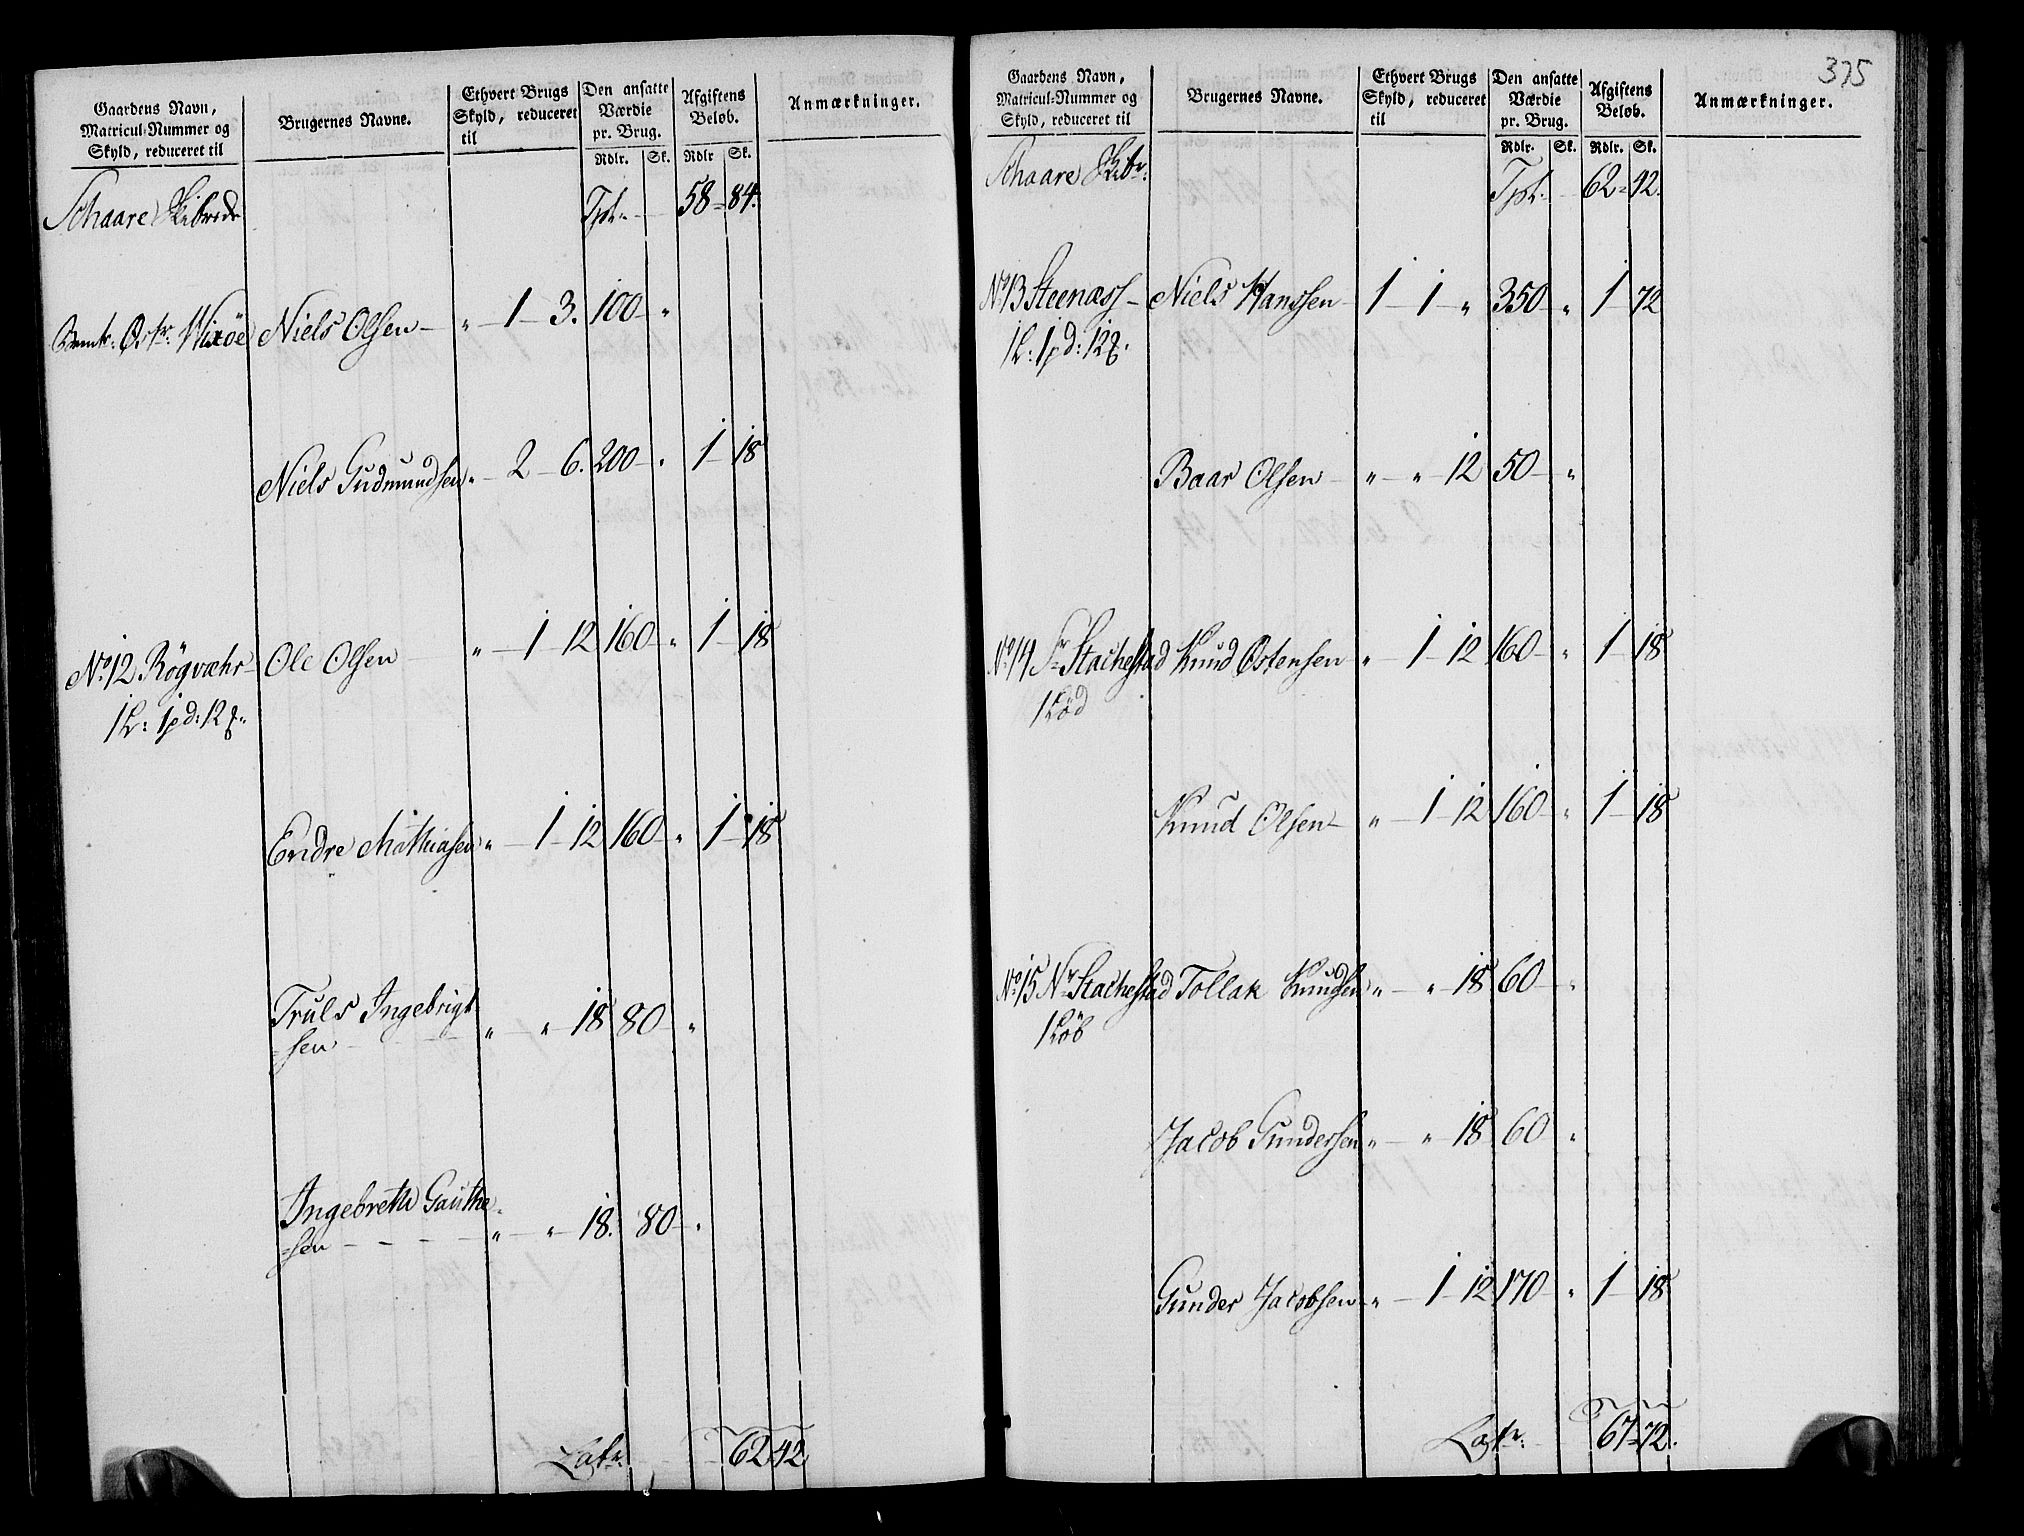 Gaardens Navn,
Matricul-Nummer og
Skyld, reduceret til
Brugernes Navne.
Ethvert Brugs
Skyld, reduceret
til
Den ansatte
Værdie
pr. Brug.
Rdlr. Sk.
Afgiftens
Beløb.
Rdlr Sk.
Anmærkninger.
Schaare Skibrede Tpt. 58 = 84.
Østr: Wixöe Niels Olsen — „ — 1 — 3. 100 — „
Niels Gudmundsen „ — 2 — 6. 200 — „ 1 — 18
No 12 Rögvæhr — Ole Olsen „ — 1 — 12 160 — „ 1 — 18
1 L: 1 pd: 12
Endre Mathiasen „ — 1 — 12 160 — „ 1 — 18
Truls Ingebrigt
=sen „ — „ 18 80 — „
Ingebreth Gauthe
=sen — — — „ — „ — 18. 80 — „
Latr: 62 42
375
Gaardens Navn,
Matricul-Nummer og
Skyld, reduceret til
Brugernes Navne.
Ethvert Brugs
Skyld, reduceret
til
Den ansatte
Værdie
pr. Brug.
Rdlr. Sk.
Afgiftens
Beløb.
Rdlr. Sk.
Anmærkninger.
Schaare Skibr: Tpt. 62 = 42.
No 13 Steenæss — Niels Hanssen — 1 — 1 — „ 350 — „ 1 — 72
1 L: 1 pd: 12
Baar Olsen — „ — „ — 12 50 — „
No 14 Sr Stachestad Knud Østensen „ — 1 — 12 160 — „ 1 — 18
1 Löd
Knud Olsen — „ — 1 — 12 160 — „ 1 — 18
No 15 Nr Stachestad Tollak Knudsen „ — „ 18 60 — „
1 Löb
Jacob Gundersen „ — „ 18 60 — „
Gunder Jacobsen — „ — 1 — 12 170 — „ 1 — 18
Latr: 67 = 72.